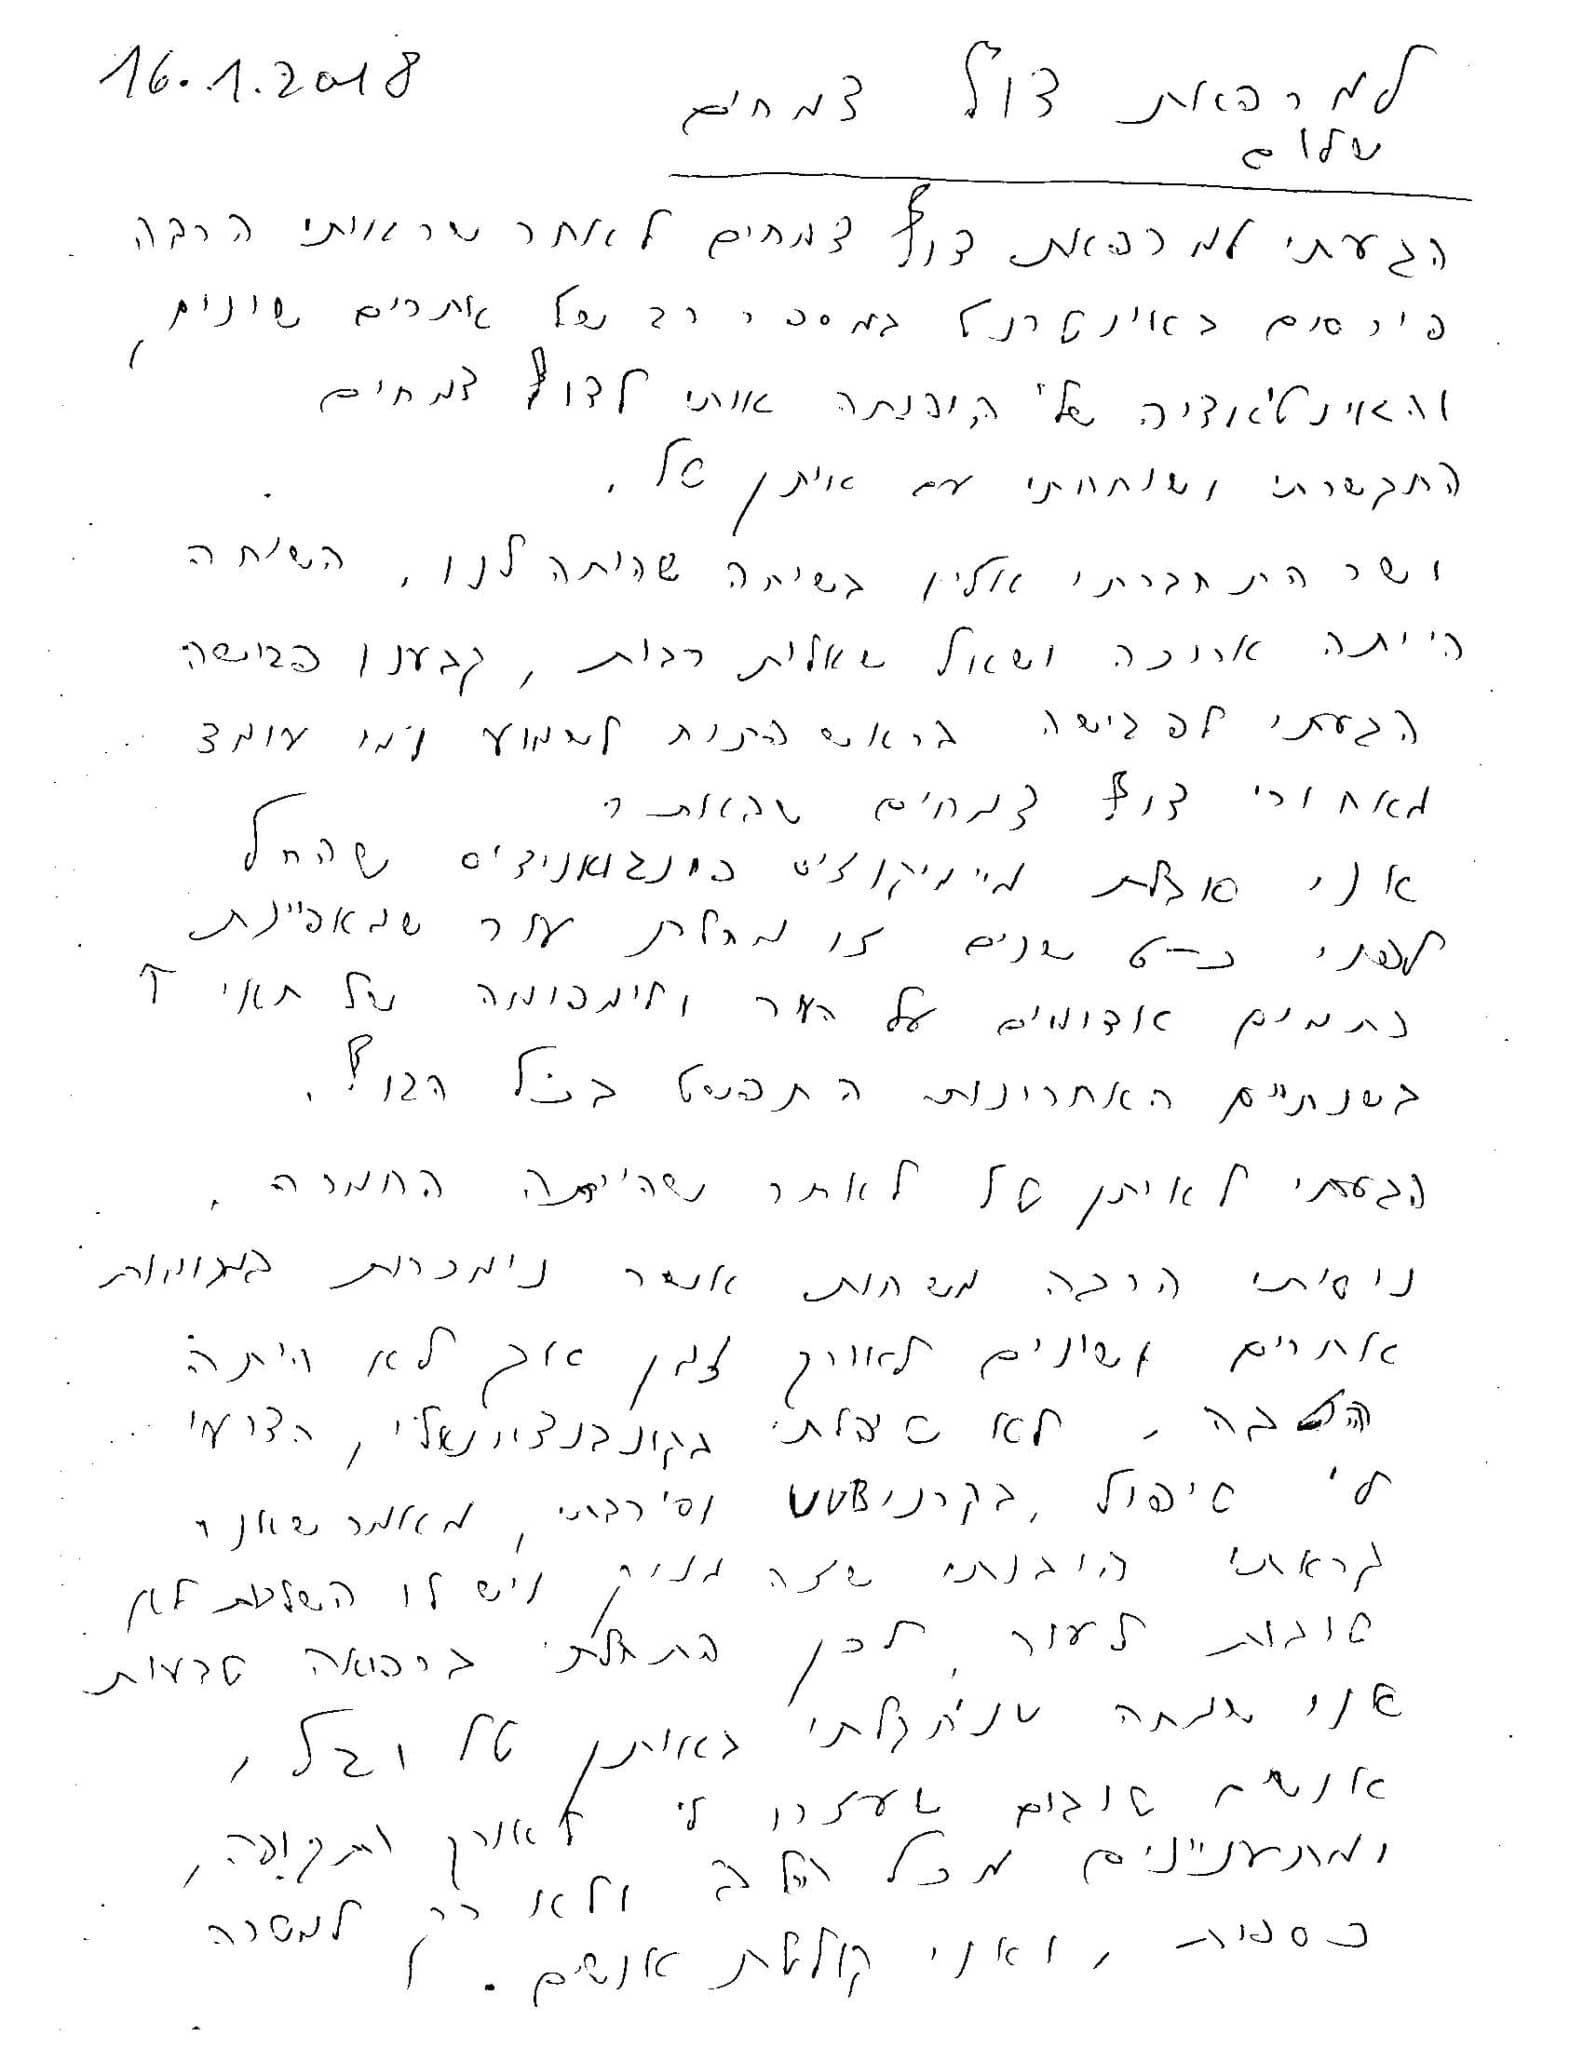 16.1.2018
למרפאת צוף צמחים
שלום
הגעתי למרפאת צוף צמחים לאחר שראיתי הרבה
פירסום באינטרנט במספר רב של אתרים שונים,
שלי היפנתה אותי לצוף צמחים
התקשרתי ושוחחתי עם איתן טל.
ושר התחברתי אליו בשיחה שהיתה לנו, השיחה
הייתה ארוכה ושאל שאלות רבות, קבענו פגישה
הגעתי לפגישה בראש פתוח לשמוע מי עומד
מאחורי צוף צמחים שהאתר
אני סובלת מ שהחל
לפני כ-9 שנים זו מחלת עור שמאפיינת
כתמים אדומים על העור ולימפומה של תאי T
בשנתיים האחרונות התפשט בכל הגוף.
הגעתי לאיתן טל לאחר שהייתה החמרה.
ניסיתי הרבה משחות אשר נימכרות
אתרים שונים לאורך זמן אבל לא היתה
הטבה, לא טיפלתי בקונבנציונאלי, הציעו
לי טיפול בקרני UVB וסירבתי, מאמר שאני
קראתי הבנתי שזה מזיק ויש לו השלכות לא
טובות לעור, לכן התחלתי ברפואה טבעית
אני שמחה שניתקלתי באיתן טל ובל,
אנשים טובים שעזרו לי לאורך התקופה,
ומתעניינים מכל הלב ולא רק למטרה
כספית, ואני קולטת אנשים.